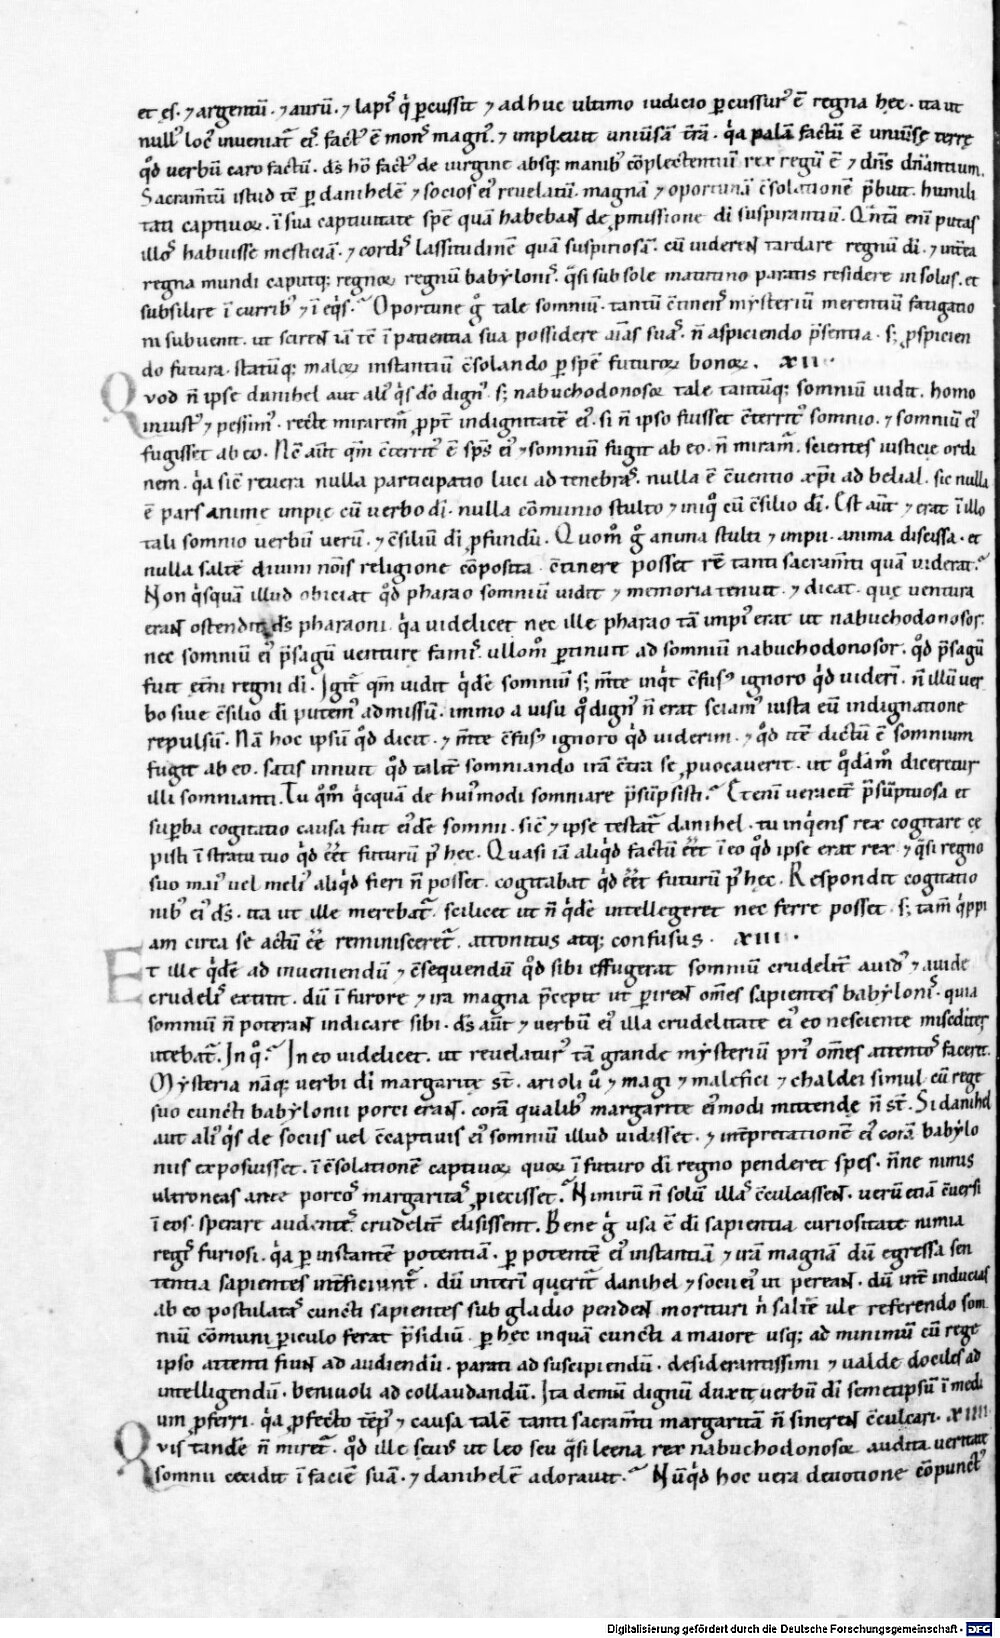 et ęs. ⁊ argentū. ⁊ aurū. ⁊ lapiſ q̇ p̄cussit ⁊ adhuc ultimo iudicio p̄cussurꝰ ē regna hęc. ita ut
nullꝰ locꝰ inueniat᷑ eiꝰ. factꝰ ē monſ magnꝰ. ⁊ impleuit uniūsā t̄rā. q̇a palā factū ē uniūsę terrę
qd̊ verbū caro factū. dſ̄ hō factꝰ de uirgine absq; manibꝰ cōplectentiū rex regū ē ⁊ dn̄s dn̄antium.
Sacram̄tū istud tē p̄ danihelē ⁊ socios eiꝰ reuelatū. magnā ⁊ oportunā c̄solationē p̄buit. humili
tati captiuoꝝ. ī sua captiuitate spē quā habebant de p̱missione dī suspirantiū. Q̄ntā enī putas
illoſ habuisse mesticiā. ⁊ cordiſ lassitudinē quā suspiriosā. cū uiderent tardare regnū dī. ⁊ int̄ea
regna mundi caputq; regnoꝝ regnū babyloniſ. q̄si sub sole matutino paratis residere in solus. et
subsilire ī curribꝰ ⁊ ī eq̇s. Oportune g̊ tale somniū. tantū c̄tinenſ mysteriū merentiū fatigatio
ni subuenit. ut scirent iā tē ī patientia sua possidere aīas suaſ. n̄ aspiciendo p̄sentia. s; p̱spicien
do futura. statūq; maloꝝ instantiū c̄solando p̄ spē futuroꝝ bonoꝝ. XII.
Qvod n̄ ipse danihel aut aliꝰ q̇s dō dignꝰ. s; nabuchodonosor tale tantūq; somniū uidit. homo
iniustꝰ ⁊ pessimꝰ. recte mirarem᷑ p̱pt̄ indignitatē eiꝰ. si n̄ ipso fuisset c̄territꝰ somnio. ⁊ somniū eiꝰ
fugisset ab eo. Nc̄ aūt qm̄ c̄territꝰ ē sp̄s eiꝰ ⁊ somniū fugit ab eo. n̄ miram᷑. scientes iusticię ordi
nem. q̇a sic̄ reuera nulla participatio luci ad tenebraſ. nulla ē c̄uentio xp̄i ad belial. sic nulla
ē pars anime impię cū verbo dī. nulla cōmunio stulto ⁊ iniq̊ cū c̄silio dī. Est aūt ⁊ erat ī illo
tali somnio verbū verū. ⁊ c̄siliū dī p̱fundū. Quom̊ g̊ anima stulti ⁊ impii. anima discissa. et
nulla saltē diuini nōis religione cōposita c̄tinere posset rē tanti sacram̄ti quā viderat.
Non q̇squā illud obiciat qd̊ pharao somniū uidit ⁊ memoria tenuit. ⁊ dicat. quę ventura
erant ostendit dſ̄ pharaoni. q̇a uidelicet nec ille pharao tā impiꝰ erat ut nabuchodonosor.
nec somniū eiꝰ p̄sagū venturę famiſ. ullom̊ p̄tinuit ad somniū nabuchodonosor. qd̊ p̄sagū
fuit ęt̄ni regni dī. Igit᷑ qm̄ uidit q̇dē somniū s; m̄te inq̇t c̄fusꝰ ignoro q̇d viderī. n̄ illū ver
bo siue c̄silio dī putemꝰ admissū. immo a uisu q̊ dignꝰ n̄ erat sciamꝰ iusta eū indignatione
repulsū. Nā hoc ipsū qd̊ dicit. ⁊ m̄te c̄fusꝰ ignoro q̇d viderim. ⁊ qd̊ itē dictū ē somnium
fugit ab eo. satis innuit qd̊ talit᷑ somniando irā c̄tra se p̱uocauerit. ut qd̄am̊ diceretur
illi somnianti. Tu qm̊ q̇cquā de huiꝰmodi somniare p̄sūpsisti. Etenī veracit᷑ p̄sūptuosa et
sup̄ba cogitatio causa fuit eiꝰdē somnii. sic̄ ⁊ ipse testat᷑ danihel. tu inq̇ens rex cogitare cę
pisti ī stratu tuo q̇d eēt futurū p̄ hęc. Quasi iā aliq̇d factū eēt ī eo qd̊ ipse erat rex. ⁊ q̄si regno
suo maiꝰ vel meliꝰ aliq̇d fieri n̄ posset. cogitabat q̇d eēt futurū p̄ hęc. Respondit cogitatio
nibꝰ eiꝰ dſ̄. ita ut ille merebat᷑. scilicet ut n̄ q̇dē intellegeret nec ferre posset. s; tam̄ q̇ppi
am circa se actū eē reminisceret᷑. attonitus atq; confusus. XIII.
Et ille q̇dē ad inueniendū ⁊ c̄sequendū qd̊ sibi effugerat somniū crudelit᷑ auidꝰ ⁊ auide
crudeliſ extitit. dū ī furore ⁊ ira magna p̄cepit ut p̄irent om̄es sapientes babyloniſ. quia
somniū n̄ poterant indicare sibi. dſ̄ aūt ⁊ verbū eiꝰ illa crudelitate eiꝰ eo nesciente misediter
utebat᷑. In q̊. In eo videlicet. ut reuelaturꝰ tā grande mysteriū priꝰ om̄es attentoſ faceret.
Mysteria nāq; verbi dī margaritę st̄. arioli ů ⁊ magi ⁊ malefici ⁊ chaldei simul cū rege
suo cuncti babylonii porci erant. corā qualibꝰ margaritę eiꝰmodi mittendę n̄ st̄. Si danihel
aut aliꝰ q̇s de sociis vel c̄captiuis eiꝰ somniū illud uidisset. ⁊ int̄pretationē eiꝰ corā babylo
niis exposuisset. ī c̄solationē captiuoꝝ quoꝝ ī futuro dī regno penderet spes. n̄ne nimis
ultroneas ante porcoſ margaritaſ p̱iecisset. Nimirū n̄ solū illaſ c̄culcassent. verū etiā c̄uersi
ī eos. sperare audenteſ crudelit᷑ elisissent. Bene g̊ usa ē dī sapientia curiositate nimia
regiſ furiosi. q̇a p̄ instantē potentiā. p̄ potentē eiꝰ instantiā ⁊ irā magnā dū egressa sen
tentia sapientes int̄ficiunt᷑. dū interī querit᷑ danihel ⁊ socii eiꝰ ut pereant. dū int̄ inducias
ab eo postulataſ cuncti sapientes sub gladio pendent morituri n̄ saltē ille referendo som
niū cōmuni p̄iculo ferat p̄sidiū. p̄ hęc inquā cuncti a maiore usq; ad minimū cū rege
ipso attenti fiunt ad audiendū. parati ad suscipiendū. desiderantissimi ⁊ ualde dociles ad
intelligendū. beniuoli ad collaudandū. Ita demū dignū duxit verbū dī semetipsū ī medi
um p̱ferri. q̇a p̱fecto tēpꝰ ⁊ causa talē tanti sacram̄ti margaritā n̄ sinerent c̄culcari. XIIII.
Qvis tandē n̄ miret᷑. qd̊ ille seuꝰ ut leo seu q̄si leena rex nabuchodonosor audita veritate
somnii cecidit ī faciē suā. ⁊ danihelē adorauit. Nūq̇d hoc vera deuotione cōpunctꝰ
Digitalisierung gefördert durch die Deutsche Forschungsgemeinschaft - DFG